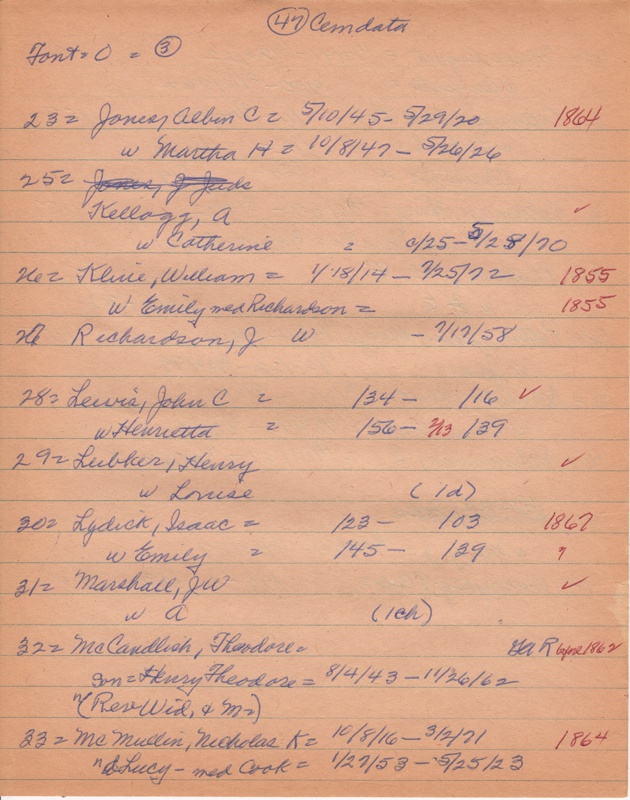 (47) Cemdata
Font = 0 = (3)
23 = Jones, Albin C = 5/10/45 - 5/29/20 1864
w Martha H = 10/8/47 - 5/26/26
25 = Jones, J Juds
Kellogg, A ✓
w Catherine = c/25 - 5/28/70
Kline, William = 1/18/14 - 7/25/72 1855
w Emily med Richardson = 1855
Richardson, J W - 7/17/58
28 = Lewis, John C = /34 - /16 ✓
w Henrietta = /56 - 2/13 /39
29 = Lubker, Henry ✓
w Louise (1d)
30 = Lydick, Isaac = /23 - /03 1867
w Emily = /45 - /29 ?
31 = Marshall, JW ✓
w A (1ch)
32 = McCandlish, Theodore = 1862
son = Henry Theodore = 8/4/43 - 11/26/62
(Rev Wid, & M =)
33 = McMullin, Nicholas K = 10/8/16 - 3/2/71 1864
Lucy - med Cook = 1/27/53 - 5/25/23